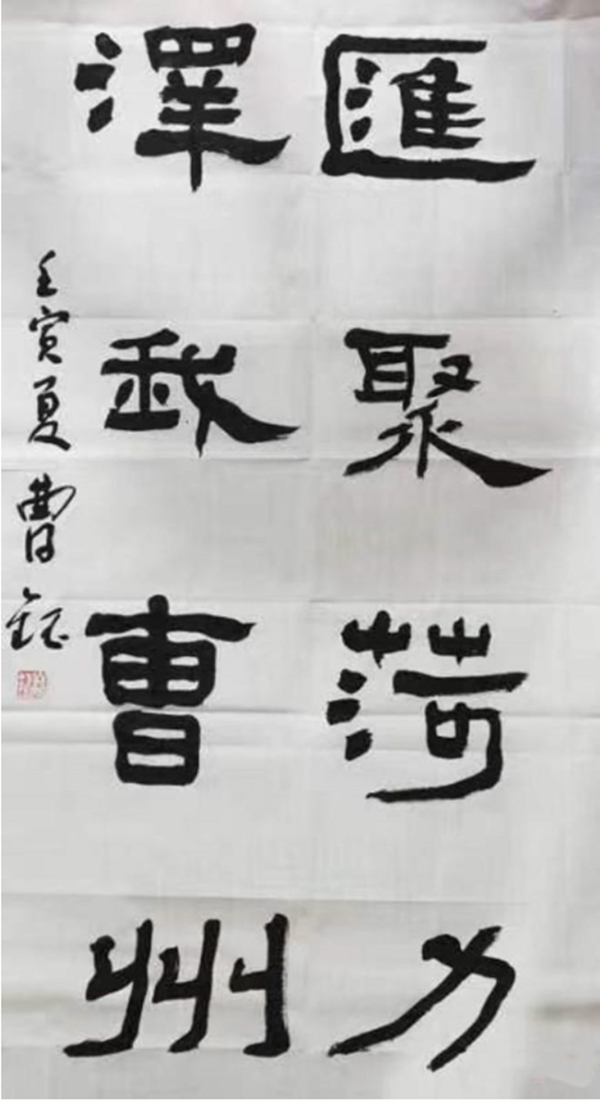 匯聚菏力
澤我曹州
壬寅夏 曹